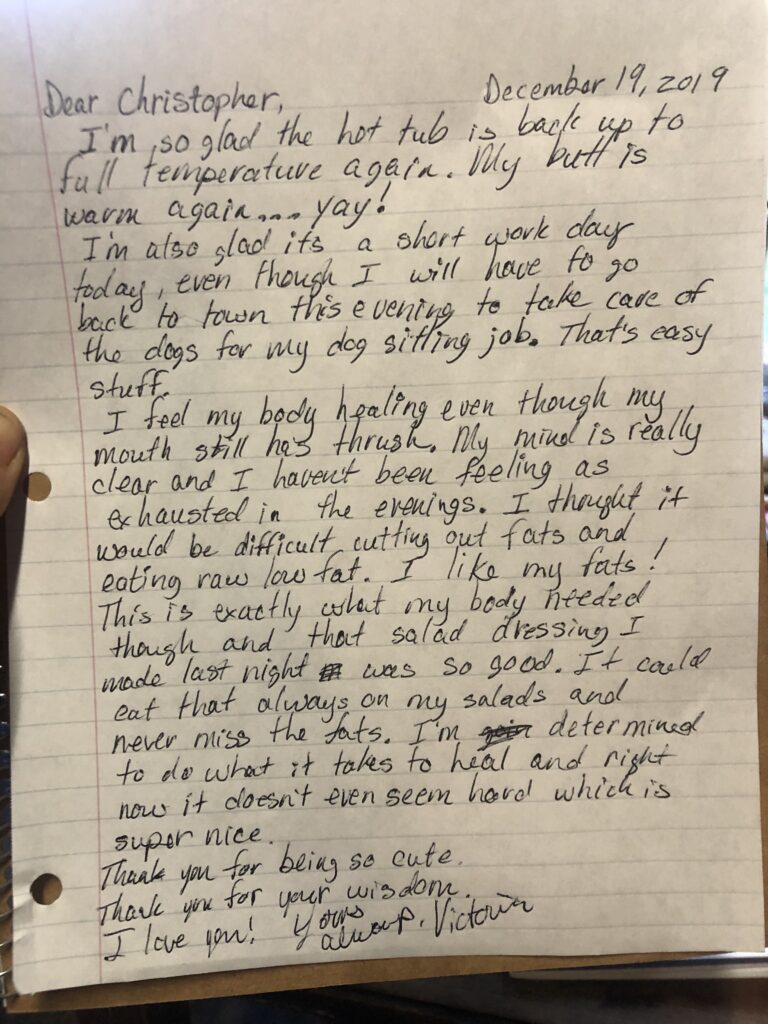 December 19, 2019
Dear Christopher,
I'm so glad the hot tub is back up to
full temperature again. My butt is
warm again.... yay!
I'm also glad its a short work day
today, even though I will have to go
back to town this evening to take care of
the dogs for my dog sitting job. That's easy
stuff.
I feel my body healing even though my
mouth still has thrush. My mind is really
clear and I haven't been feeling as
exhausted in the evenings. I thought it
would be difficult cutting out fats and
eating raw low fat. I like my fats!
This is exactly what my body needed
though and that salad dressing I
made last night was so good. It could
eat that always on my salads and
never miss the fats. I'm determined
to do what it takes to heal and right
now it doesn't even seem hard which is
super nice.
Thank you for being so cute.
Thank you for your wisdom.
I love you! Yours
always, Victoria